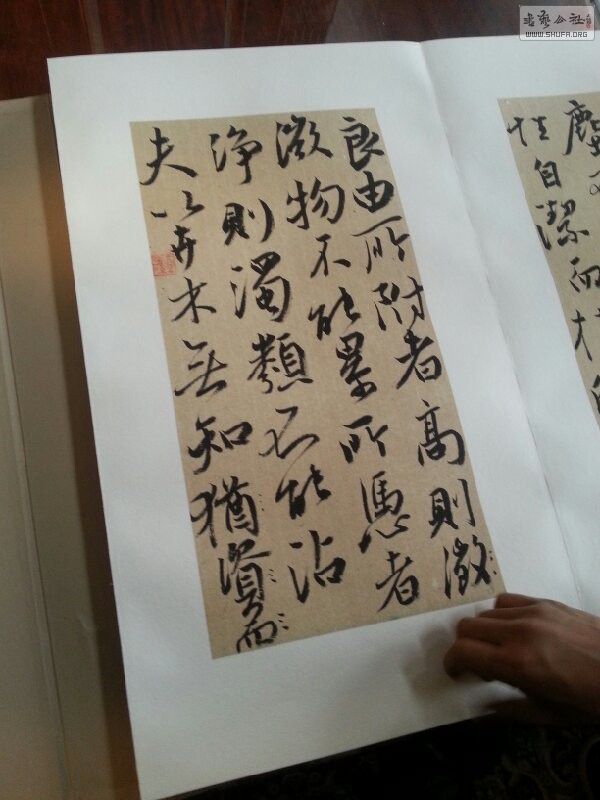 書藝公社
WWW.SHUFA.ORG
性自潔而
良由所附者高則微
微物不能累所憑者
浄則濁類不能沾
夫以卉木無知猶賢而